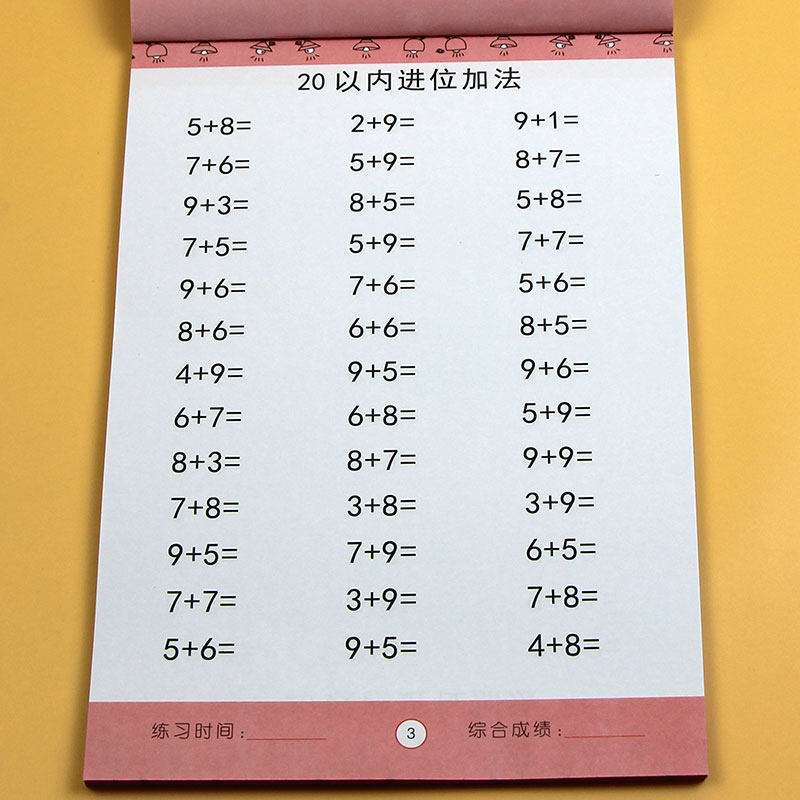 20以内进位加法
5+8= 2+9= 9+1=
7+6= 5+9= 8+7=
9+3= 8+5= 5+8=
7+5= 5+9= 7+7=
9+6= 7+6= 5+6=
8+6= 6+6= 8+5=
4+9= 9+5= 9+6=
6+7= 6+8= 5+9=
8+3= 8+7= 9+9=
7+8= 3+8= 3+9=
9+5= 7+9= 6+5=
7+7= 3+9= 7+8=
5+6= 9+5= 4+8=
练习时间:________ 3 综合成绩:________